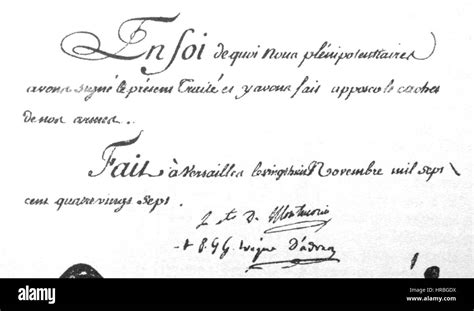 En foi de quoi Nous plénipotentiaires
avons signé le présent Traité et y avons fait apposer le cachet
de nos armes.
Fait à Versailles le vingt huit Novembre mil sept
cent quatre vingt sept.
cte De Montmorin
+ P. G G. D'adran
alamy stock photo
HRBGDX